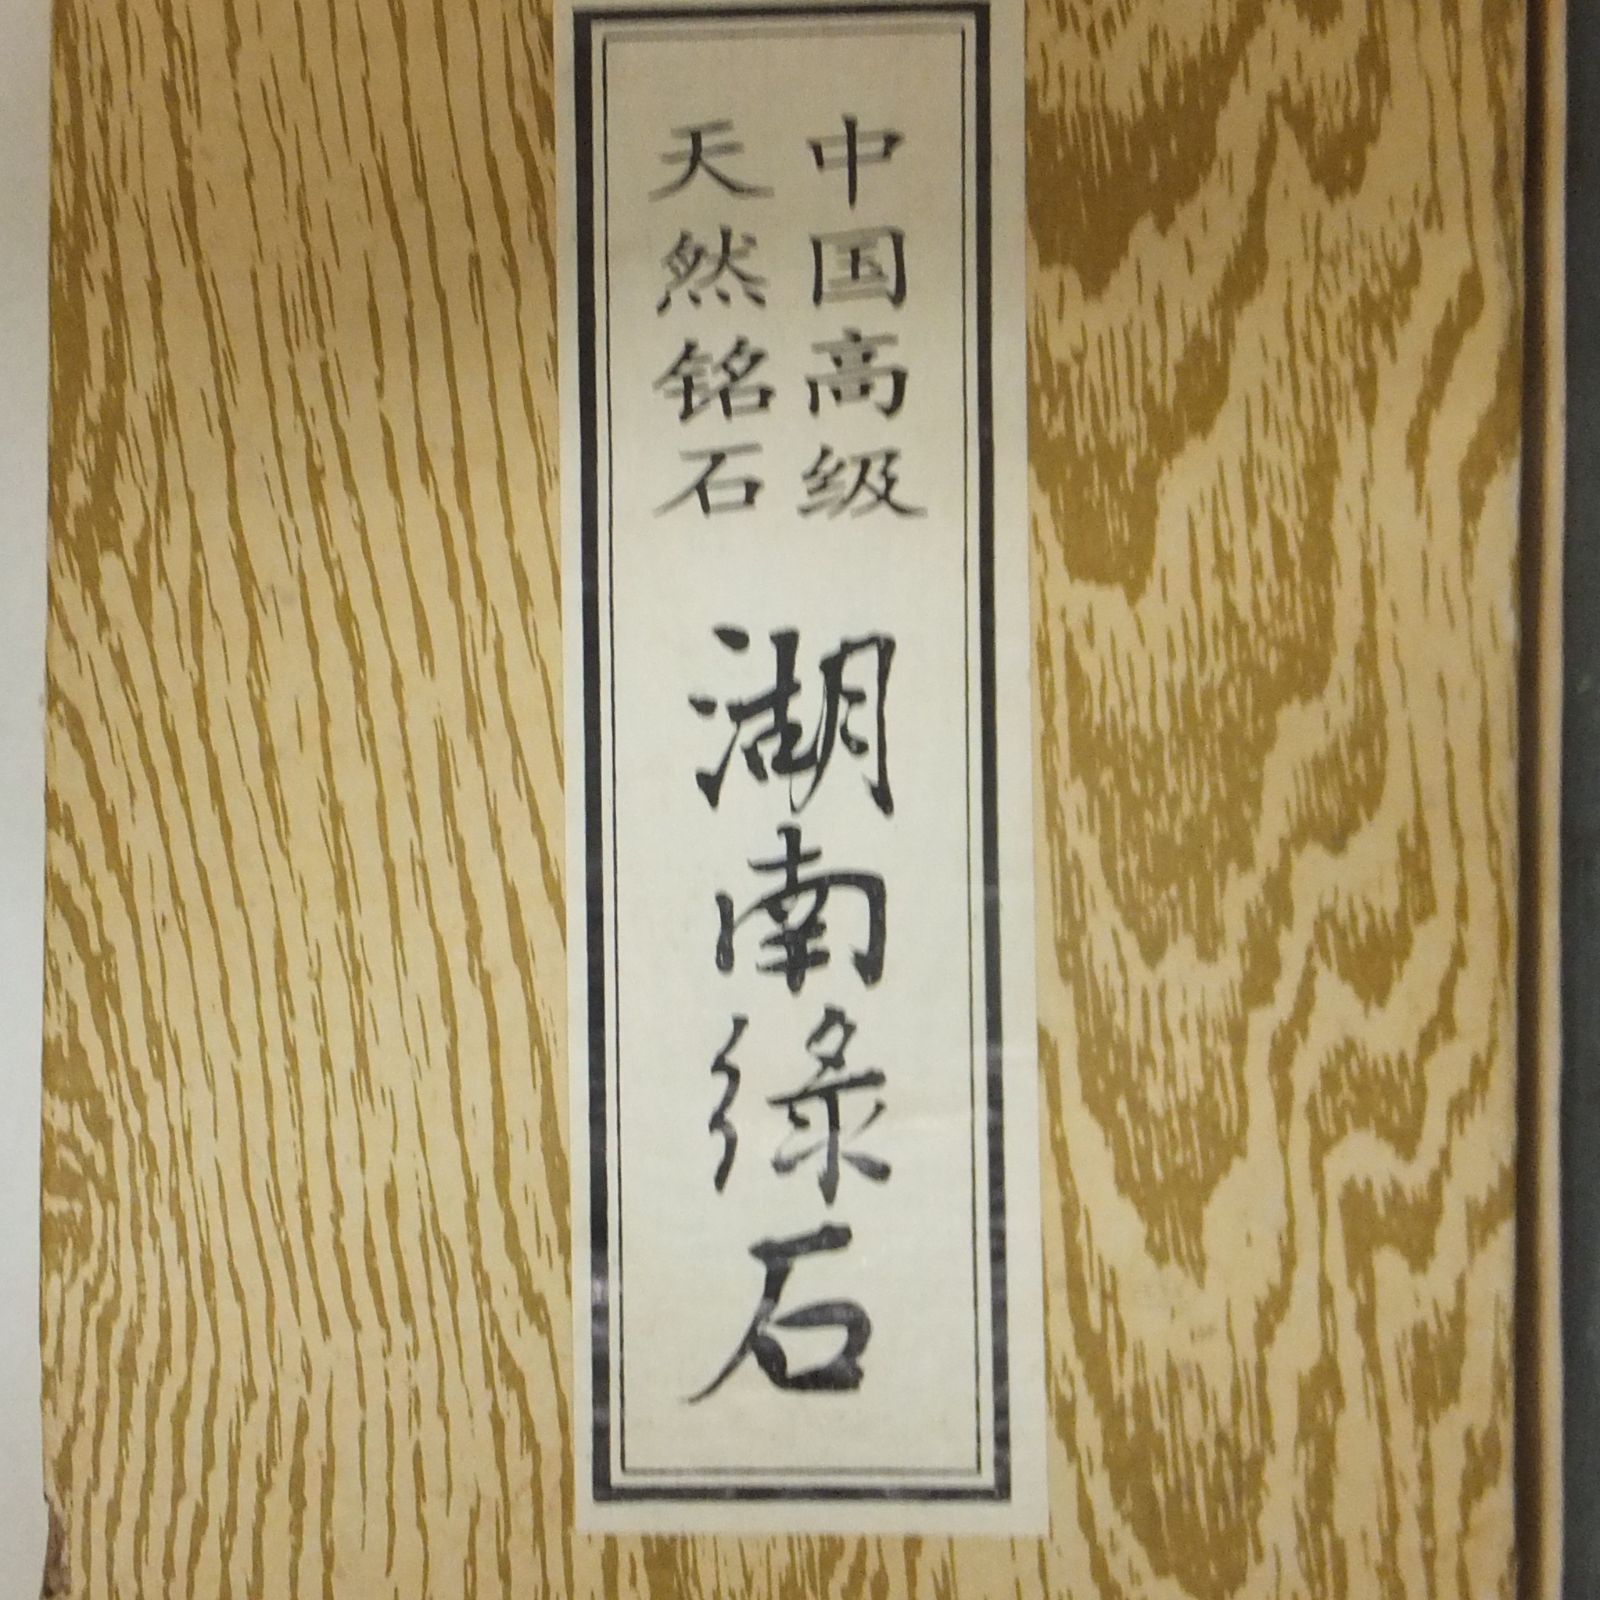 中国高级
天然铭石
湖南緑石